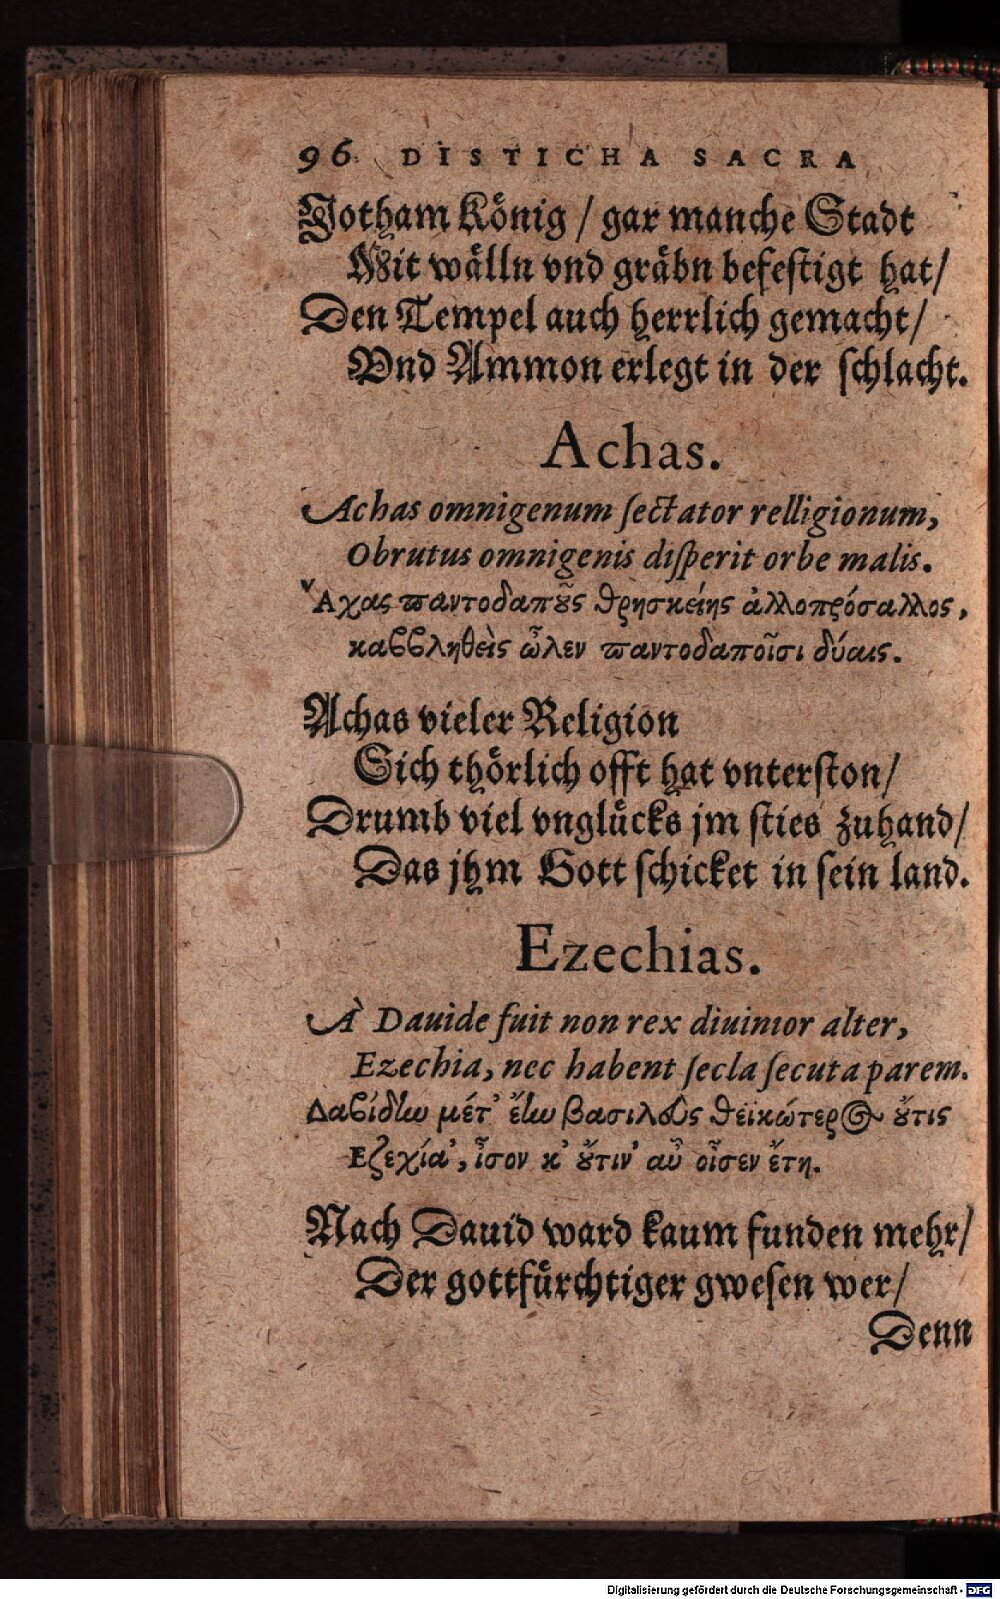 96 DISTICHA SACRA
Jotham König / gar manche Stadt
Mit wälln vnd gräbn befestigt hat/
Den Tempel auch herrlich gemacht/
Vnd Ammon erlegt in der schlacht.
Achas.
Achas omnigenum sectator relligionum,
Obrutus omnigenis disperit orbe malis.
Ἄχας παντοδαποῦς θρησκείης ἀλλοπρόσαλλος,
καββληθεὶς ὦλεν παντοδαποῖσι δύαις.
Achas vieler Religion
Sich thörlich offt hat vnterston/
Drumb viel vnglücks jm sties zuhand/
Das jhm Gott schicket in sein land.
Ezechias.
À Dauide fuit non rex diuinior alter,
Ezechia, nec habent secla secuta parem.
Δαβίδην μέτ' ἔην βασιλεὺς θεϊκώτερος οὔτις
Εζεχία', ἶσον κ' οὔτιν' αὖ οἶσεν ἔτη.
Nach Dauid ward kaum funden mehr/
Der gottfürchtiger gwesen wer/
Denn
Digitalisierung gefördert durch die Deutsche Forschungsgemeinschaft - DFG